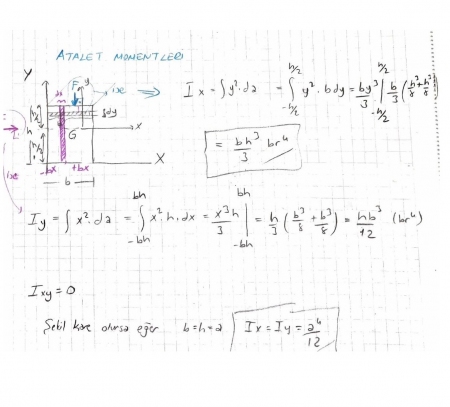 ATALET MOMENTLERİ
Y
F y ise
h/2 dy
h G x
h/2 X
-bx +bx
b
Ix = ∫y².da = ∫_{-h/2}^{h/2} y².bdy = by³/3 |_{-h/2}^{h/2} b/3 (h³/8 + h³/8)
= bh³/3 br⁴
ise
Iy = ∫x².da = ∫_{-bh}^{bh} x².h.dx = x³h/3 |_{-bh}^{bh} = h/3 (b³/8 + b³/8) = hb³/12 (br⁴)
Ixy = 0
Şekil kare olursa eğer b=h=a Ix = Iy = a⁴/12